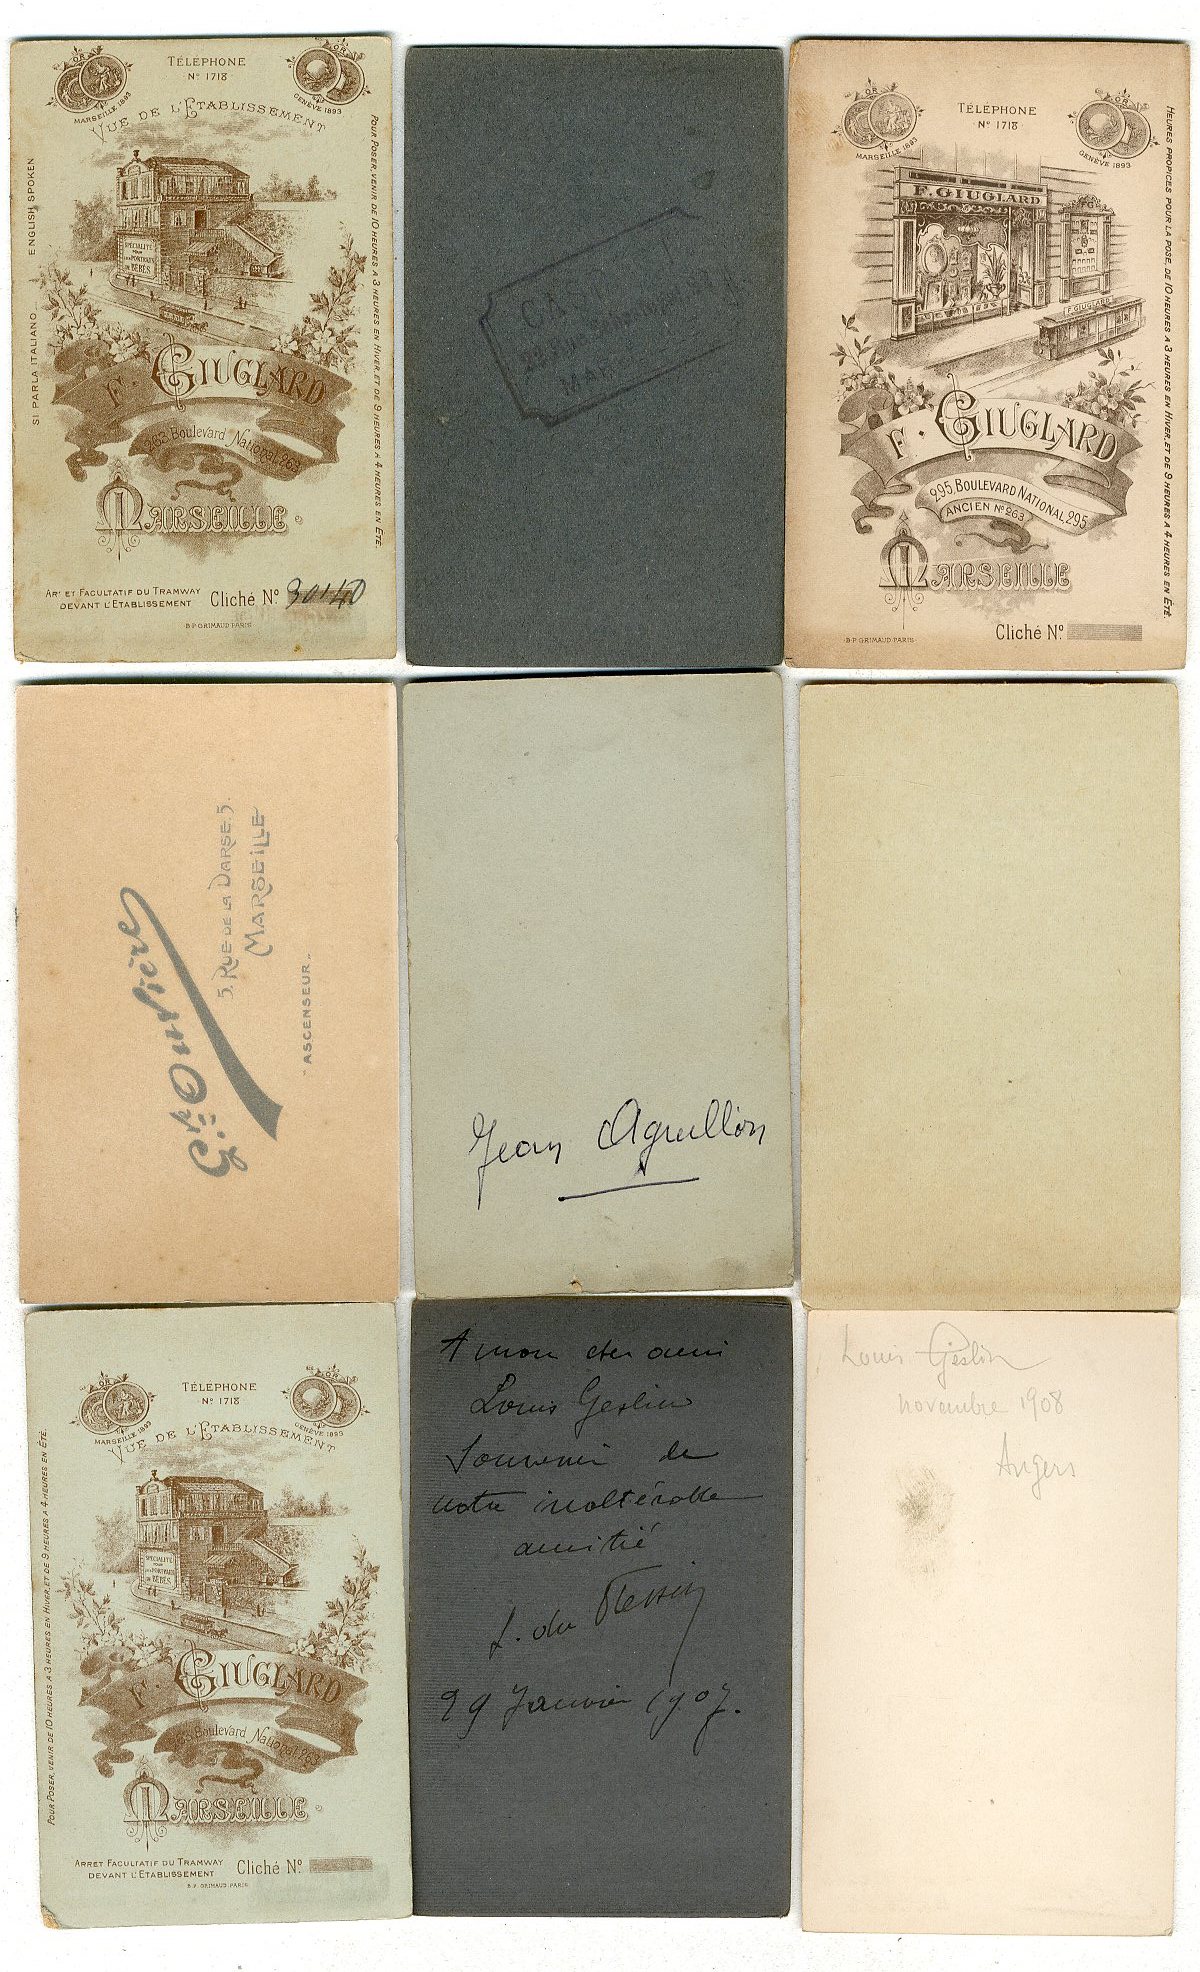 OR
MARSEILLE 1893
TÉLÉPHONE
Nº 1718
OR
GENÈVE 1893
VUE DE L'ETABLISSEMENT
ENGLISH SPOKEN
SI PARLA ITALIANO.
POUR POSER, VENIR DE 10 HEURES A 3 HEURES EN HIVER, ET DE 9 HEURES A 4 HEURES EN ETÉ.
SPÉCIALITÉ
POUR
LES PORTRAITS
DE BÉBÉS
F. GIUGLARD
263 Boulevard National 263
MARSEILLE
ART ET FACULTATIF DU TRAMWAY
DEVANT L'ETABLISSEMENT
Cliché Nº 30140
B.P. GRIMAUD.PARIS
MAR
OR
MARSEILLE 1893
TÉLÉPHONE
Nº 1718
OR
GENÈVE 1893
HEURES PROPICES POUR LA POSE, DE 10 HEURES A 3 HEURES EN HIVER, ET DE 9 HEURES A 4 HEURES EN ETÉ.
F. GIUGLARD
F. GIUGLARD
F. GIUGLARD
295, BOULEVARD NATIONAL, 295
ANCIEN Nº 263
MARSEILLE
Cliché Nº.
B.P. GRIMAUD. PARIS
Ouvière
5, RUE DE LA DARSE, 5.
MARSEILLE
"ASCENSEUR"
Jean Agullon
OR
MARSEILLE 1893
TÉLÉPHONE
Nº 1718
OR
GENÈVE 1893
VUE DE L'ETABLISSEMENT
POUR POSER, VENIR DE 10 HEURES A 3 HEURES EN HIVER, ET DE 9 HEURES A 4 HEURES EN ETÉ.
SPÉCIALITÉ
POUR
LES PORTRAITS
DE BÉBÉS
F. GIUGLARD
263 Boulevard National 263
MARSEILLE
ARRET FACULTATIF DU TRAMWAY
DEVANT L'ETABLISSEMENT
Cliché Nº.
B.P. GRIMAUD.PARIS
A mon cher ami
Louis Geslin
Souvenir de
notre inaltérable
amitié
du
29 Janvier 1907.
Louis Geslin
novembre 1908
Angers